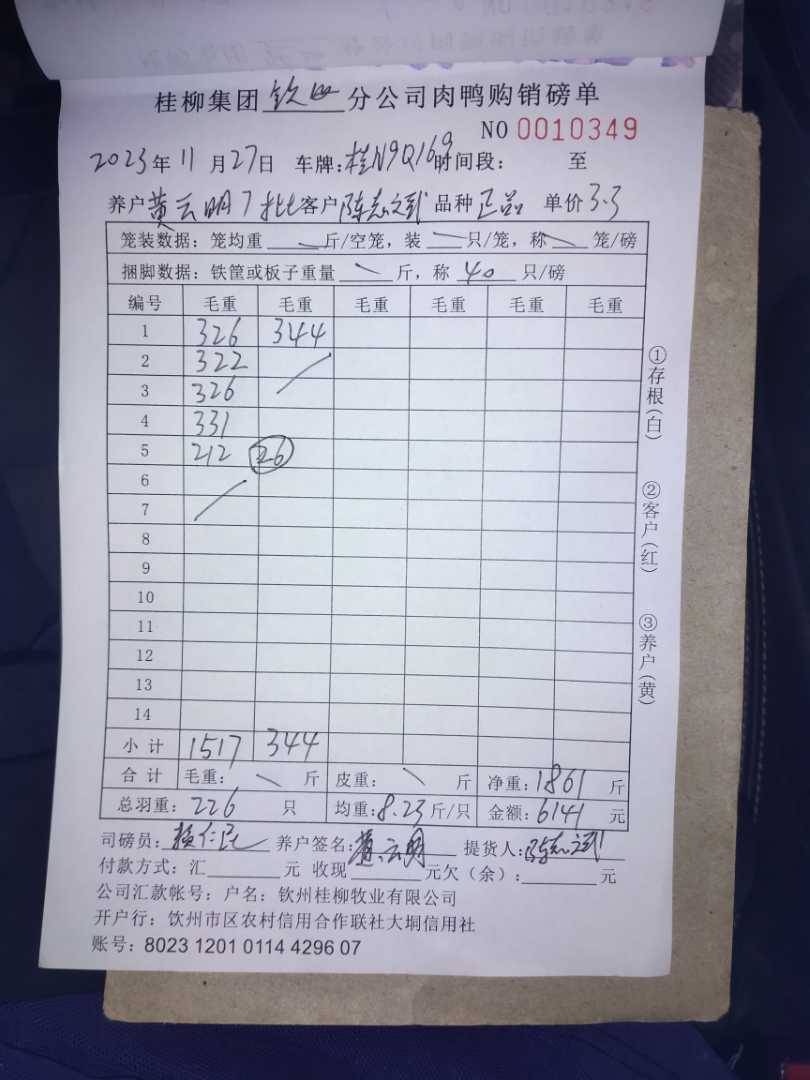 桂柳集团 钦州 分公司肉鸭购销磅单
NO 0010349
2023年11月27日 车牌:桂N9Q169时间段: 至
养户黄云明7批客户陈志斌 品种正品 单价3.3
笼装数据: 笼均重 斤/空笼, 装 只/笼, 称 笼/磅
捆脚数据: 铁筐或板子重量 斤, 称 40 只/磅
编号 毛重 毛重 毛重 毛重 毛重 毛重
1 326 344
2 322
3 326
4 331
5 212 26
6
7
8
9
10
11
12
13
14
小计 1517 344
合计 毛重: 斤 皮重: 斤 净重:1861 斤
总羽重: 226 只 均重:8.23斤/只 金额:6141 元
司磅员: 养户签名:黄云明 提货人:陈志斌
付款方式: 汇 元 收现 元欠(余): 元
公司汇款帐号: 户名: 钦州桂柳牧业有限公司
开户行: 钦州市区农村信用合作联社大垌信用社
账号: 8023 1201 0114 4296 07
①存根(白)
②客户(红)
③养户(黄)